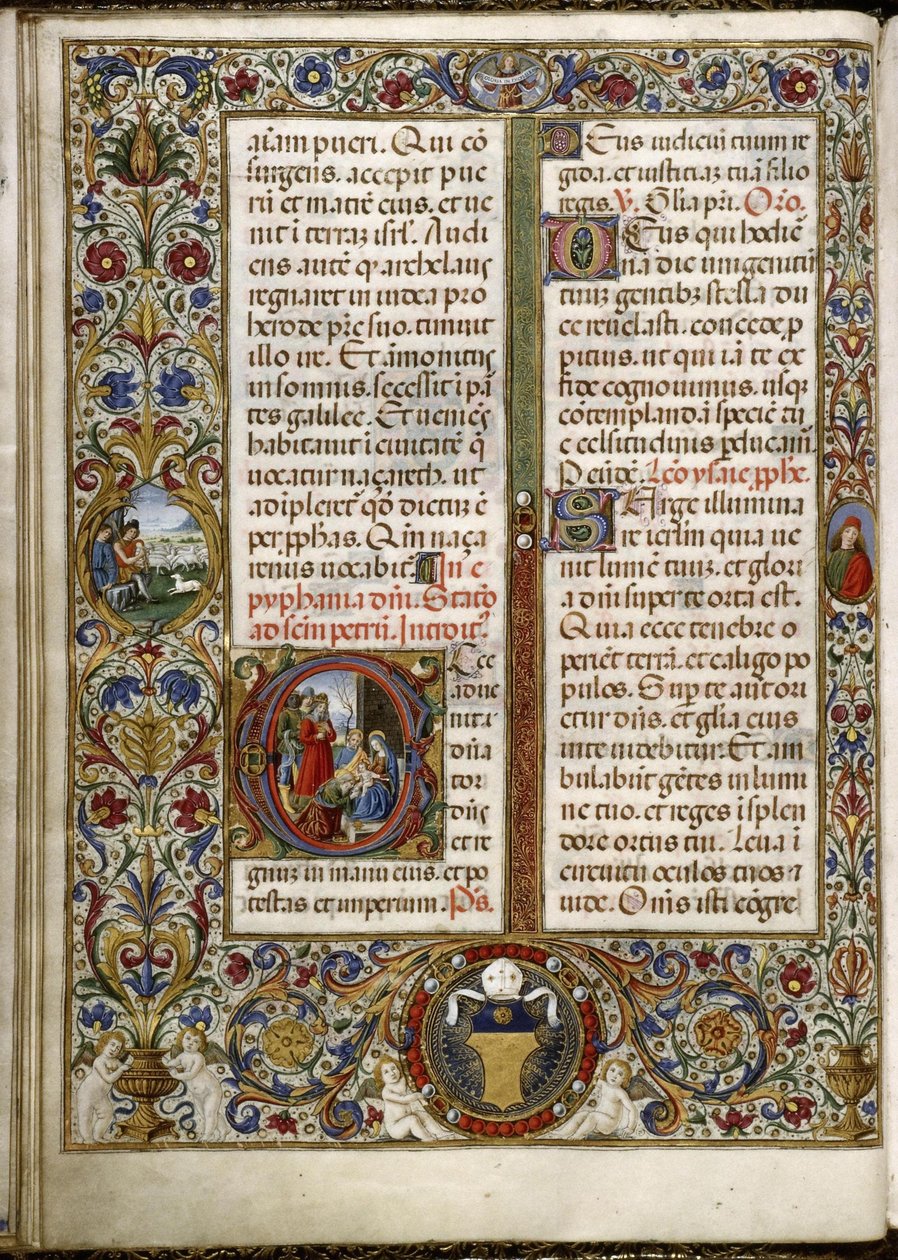 GLORIA IN
aīam pueri. Qui cō
surgens. accepit pue
rū et matrē eius. et ue
nit ī terraz isrl. Audi
ens autē qꝫ archelaus
regnaret in iudea pro
herode pr̄e suo. timuit
illo ire. Et āmonitus
in somnis. secessit ī p̄a
tes galilee. Et ueniēs
habitauit ī ciuitate q̄
uocatur naçareth. ut
adīpleret̄ qd̄ dictuz ē
per. ꝓphās. Qm̄ naça
renus uocabit̄. In e
pyphania dn̄i. Statiō
ad scm̄ petrū. Introit.
Ecce
adue
nit d
n̄ia
tor
dn̄s
et re
gnuz in manu eius. et po
testas et imperium. Ps̄.
Deus iudiciū tuum re
gi da. et iustitiaz tuā filio
regis. V. Gl̄ia pr̄i. Orō.
Deus qui hodiē
na die unigenitū
tuuz gentibz stella du
ce reuelasti. concede. ꝓ
pitius. ut qui iā te ex
fide cognouimus. usqꝫ
cōtemplandā speciē tu
e celsitudinis ꝑducam̄.
P eūde. Lcō ysaie. ꝓphe.
Surge illumina
re ierlm̄ quia ue
nit lumē tuuz. et glori
a dn̄i super te orta est.
Quia ecce tenebre o
periēt terrā. et caligo po
pulos. Supꝑ te aut ori
etur dn̄s. et gl̄ia eius
in te uidebitur. Et am
bulabūt gētes in lumi
ne tuo. et reges ī splen
dore ortus tui. Leua ī
circuitu oculos tuos ⁊
uide. Om̄s isti cōgre